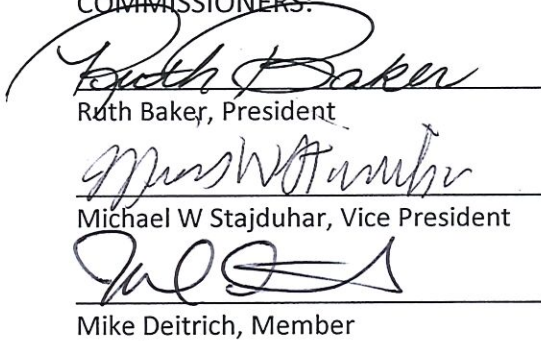 COMMISSIONERS:
Ruth Baker
Ruth Baker, President
Michael W Stajduhar, Vice President
Mike Deitrich, Member